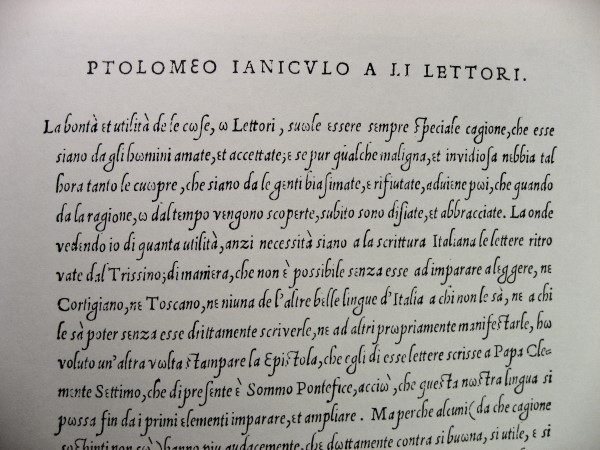 PTOLOMƐO IANICVLO A LI LETTORI.
La bontà et utilità de le cωse, ω Lettori, suωle εssere sεmpre ſpeciale cagione, che esse
siano da gli hωmini amate, et accettate; ε se pur qualche maligna, et invidioſa nεbbia tal
hora tanto le cuωpre, che siano da le gεnti biaſimate, ε rifiutate, adviεne pωi, che quando
da la ragione, ω dal tεmpo vεngono scopεrte, subito sono diſiate, et abbracciate. La onde
vedεndo io di quanta utilità, anzi necessità siano a la scrittura Italiana le lettere ritro
vate dal Trissino; di maniεra, che non ὲ possibile sεnza esse ad imparare a lεggere, nε
Cortigiano, nε Toscano, nε niuna de l'altre bεlle lingue d'Italia a chi non le sà, nε a chi
le sà poter sεnza esse drittamente scriverle, nε ad altri propriamente manifeſtarle, hω
voluto un'altra vωlta ſtampare la Epiſtola, che εgli di esse lettere scrisse a Papa Cle
mεnte Sεttimo, che di preſεnte ὲ Sommo Pontefice, acciὼ, che queſta noſtra lingua si
pωssa fin da i primi elementi imparare, et ampliare. Ma perche alcuni (da che cagione
soſpinti non sὼ) hanno più audacemente, che dωttamente contra si buωna, si utile, ε si